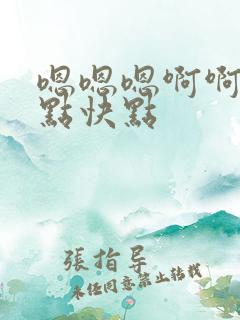 嗯嗯嗯啊啊
點快點
張指导
未任同意禁止转载